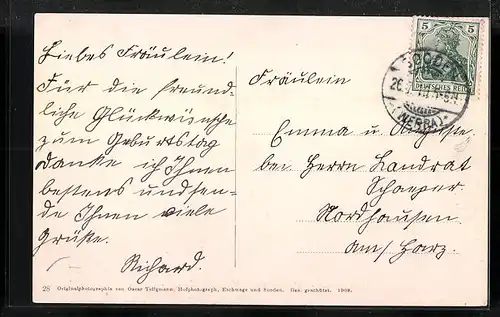 Liebes Fräulein!
Für die freund-
liche Glückwünsche
zum Geburtstag
danke ich Ihnen
bestens und sen-
de Ihnen viele
Grüße.
Richard.
Fräulein
Emma u. Auguste
bei Herrn Landrat
Schaeper
Nordhausen
am/Harz.
5 5
DEUTSCHES REICH
SOODEN
(WERRA)
28 Originalphotographie von Oscar Tellgmann, Hofphotograph, Eschwege und Sooden. Ges. geschützt. 1909.